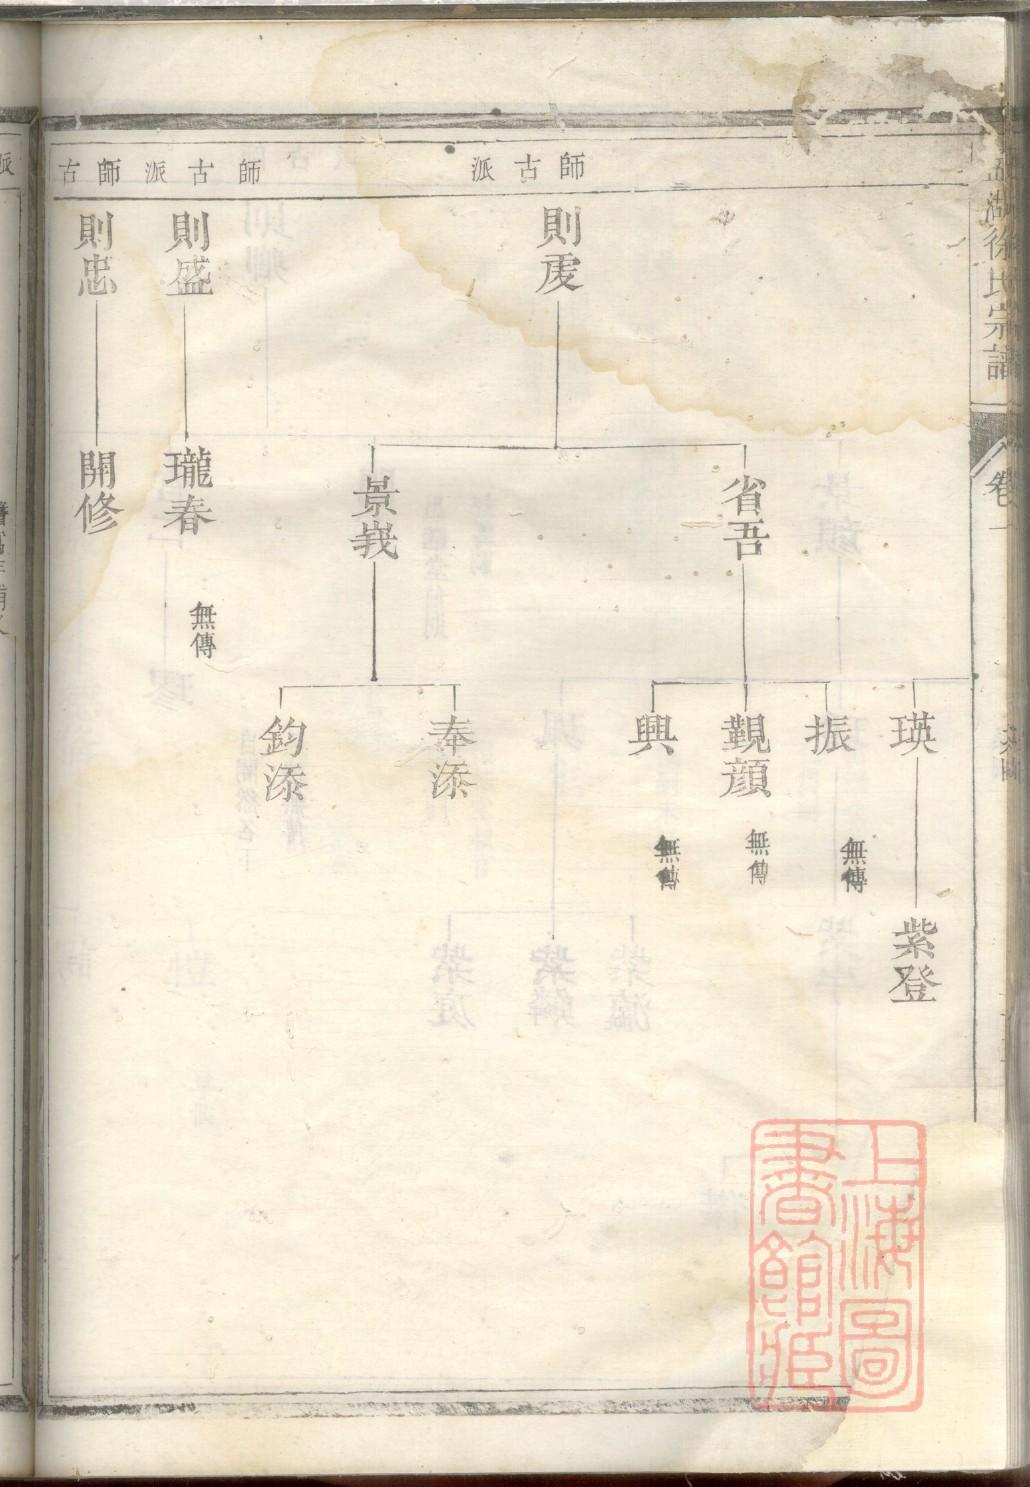 湖徐氏宗譜
卷一
師古派
則虔
省吾
景峩
瑛
振
無傳
覲顔
無傳
興
無傳
奉添
鈞添
紫登
師古派
則盛
瓏春
無傳
師古
則忠
開修
派
上海圖
書館藏